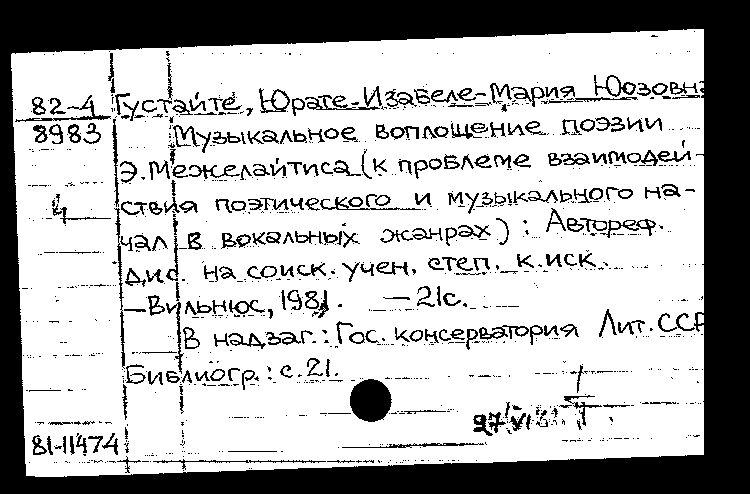 82-4 Густайте, Юрате-Изабеле-Мария Юозовна
8983 Музыкальное воплощение поэзии
Э. Межелайтиса (к проблеме взаимодей-
ствия поэтического и музыкального на-
чал в вокальных жанрах) : Автореф.
дис. на соиск. учен. степ. к. иск.
—Вильнюс, 1981. — 21с.
В надзаг.: Гос. консерватория Лит. ССР
Библиогр.: с. 21.
81-11474